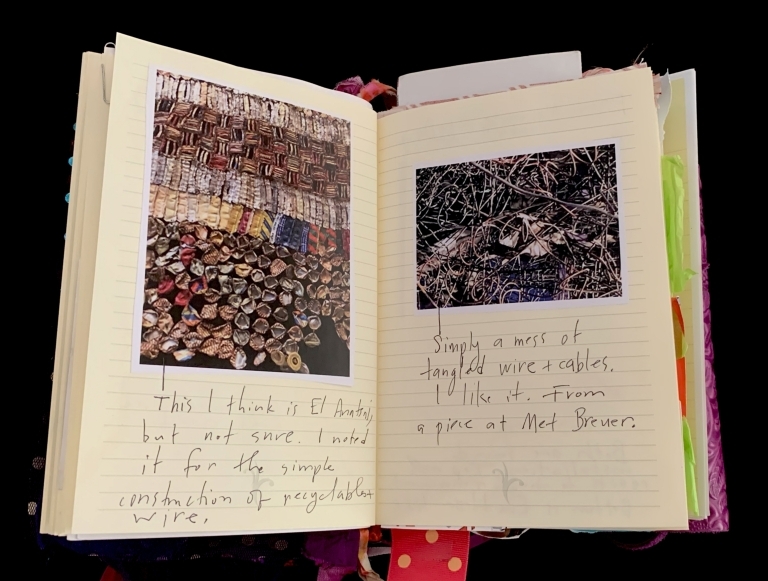 This I think is El Anatsui,
but not sure. I noted
it for the simple
construction of recyclables +
wire.
Simply a mess of
tangled wire + cables.
I like it. From
a piece at Met Breuer.